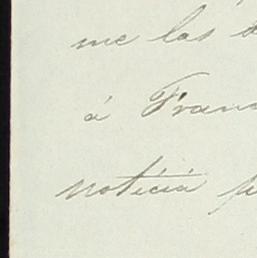 me las
á Fran
noticia p